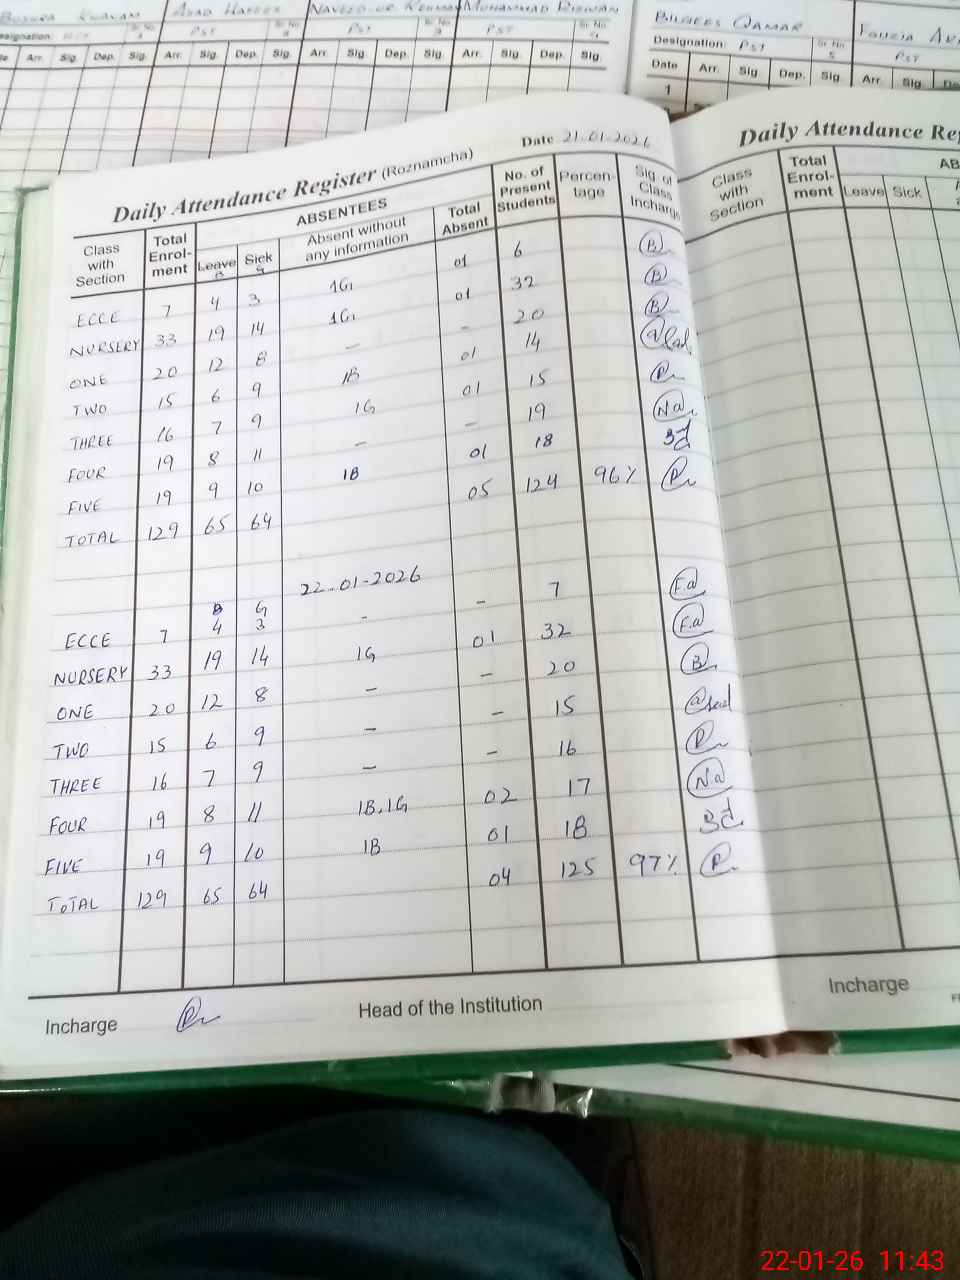 BUSHRA KHANAM ASAD HAFEEZ NAVEED-UR-REHMAN MUHAMMAD RIZWAN
Designation: PST Sr. No. PST Sr. No. PST Sr. No. 3 PST Sr. No. 4
Arr. Sig. Dep. Sig. Arr. Sig. Dep. Sig. Arr. Sig. Dep. Sig. Arr. Sig. Dep. Sig.
BILQEES QAMAR FOUZIA
Designation: PST Sr. No. 5 PST
Date Arr. Sig. Dep. Sig. Arr. Sig.
1
Daily Attendance Register (Roznamcha) Date 21.01.2026
Class with Section Total Enrol-ment ABSENTEES Total Absent No. of Present Students Percen-tage Sig. of Class Incharge
Leave Sick Absent without any information
B G
ECCE 7 4 3 1G 01 6 B
NURSERY 33 19 14 1G 01 32 B
ONE 20 12 8 – – 20 B
TWO 15 6 9 1B 01 14
THREE 16 7 9 1G 01 15
FOUR 19 8 11 – – 19 Na
FIVE 19 9 10 1B 01 18
TOTAL 129 65 64 05 124 96%
22-01-2026
B G
ECCE 7 4 3 – – 7 F.a
NURSERY 33 19 14 1G 01 32 F.a
ONE 20 12 8 – – 20 B
TWO 15 6 9 – – 15
THREE 16 7 9 – – 16
FOUR 19 8 11 1B,1G 02 17 Na
FIVE 19 9 10 1B 01 18
TOTAL 129 65 64 04 125 97%
Incharge Head of the Institution
Daily Attendance Re
Class with Section Total Enrol-ment AB
Leave Sick
Incharge
22-01-26 11:43